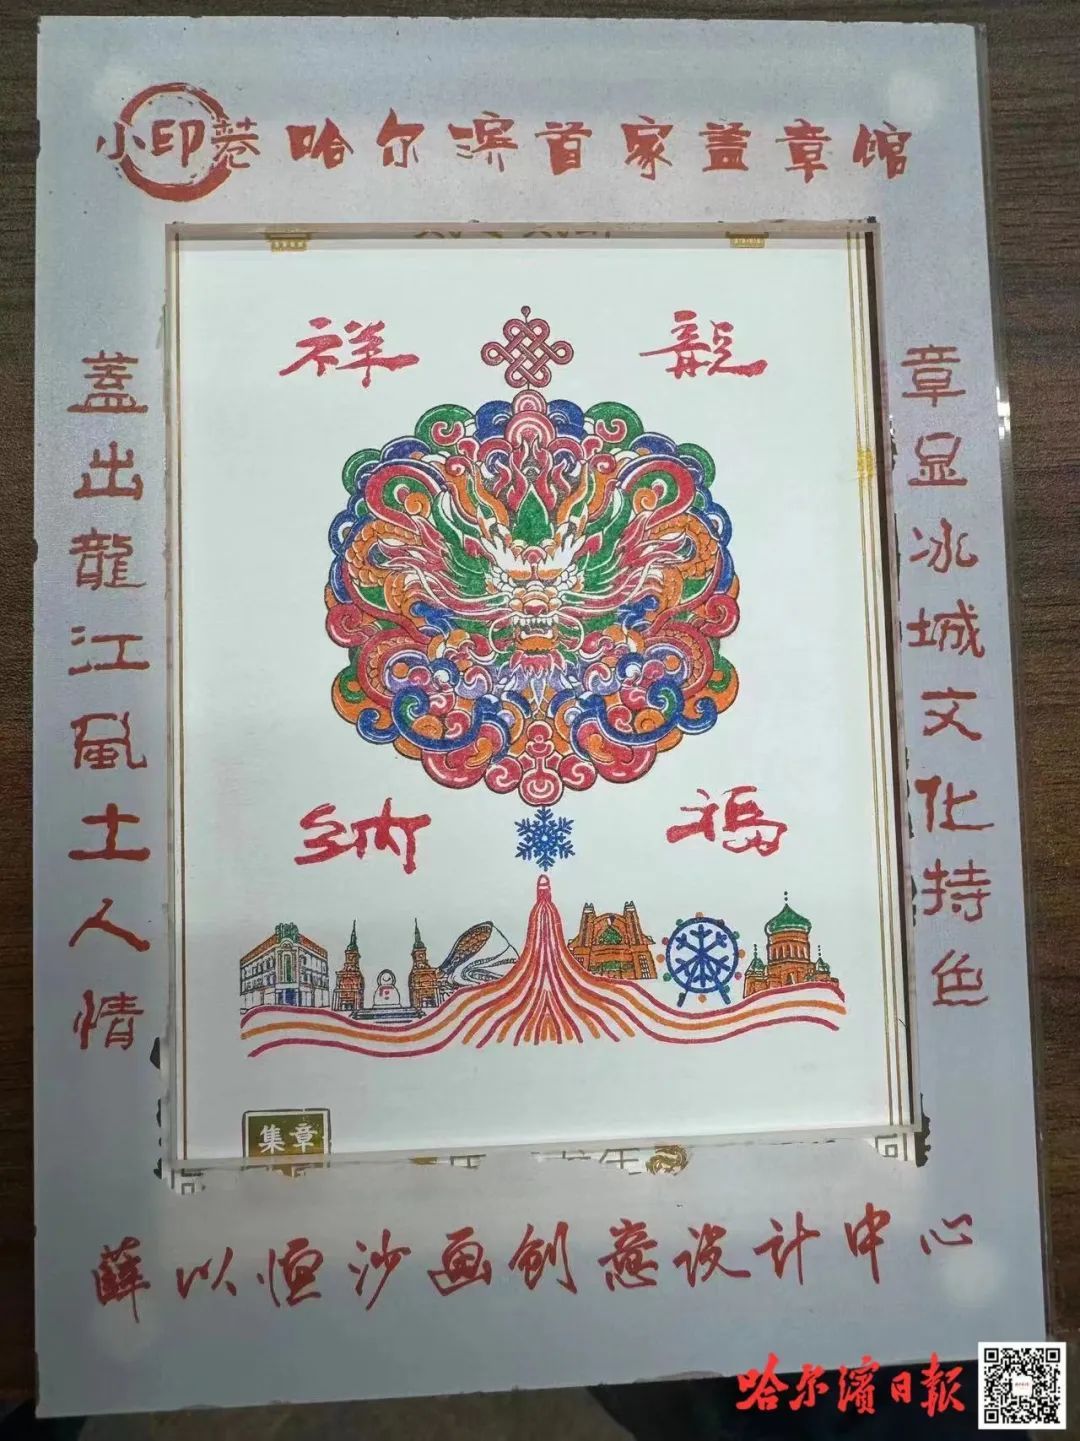 小印巷 哈尔滨首家盖章馆
章显冰城文化特色
蓋出龍江風土人情
祥龍
納福
集章
薛以恒沙画创意设计中心
哈尔滨日报